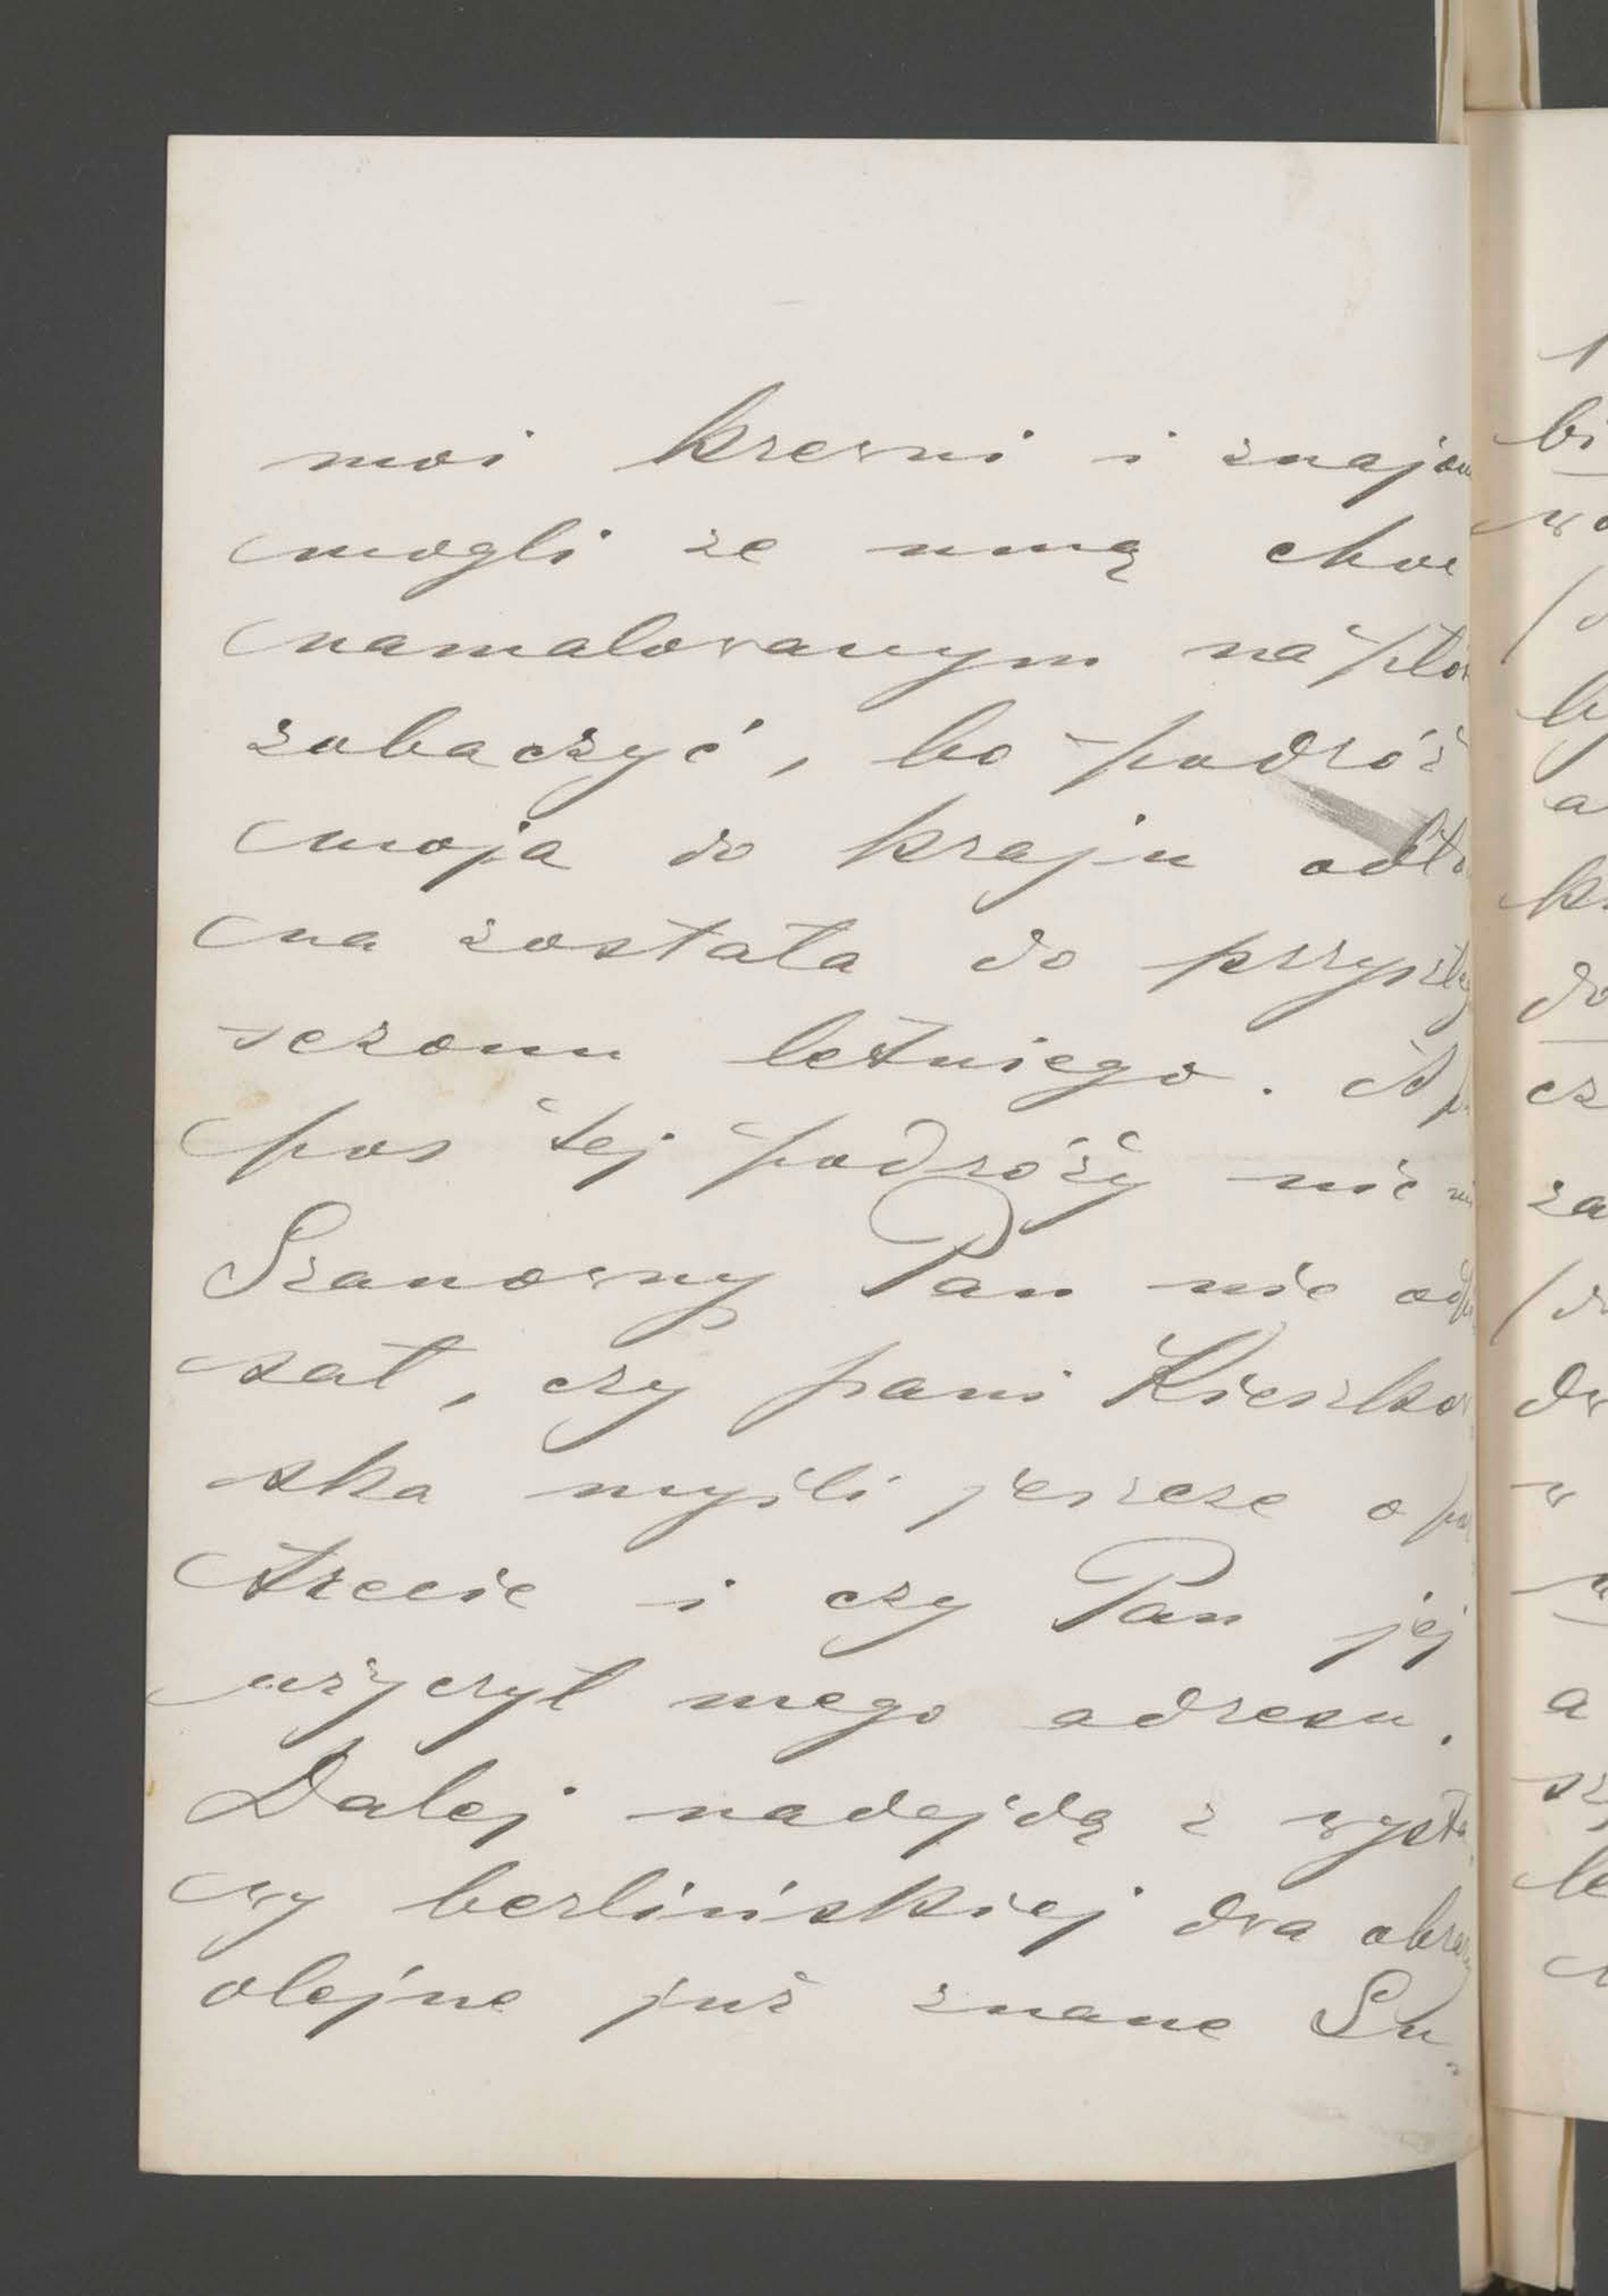 moi krewni i znajom
mogli ze mną choć
namalowanym na płót
zobaczyć, bo podróż
moja do kraju odło
na została do przyszłeg
sezonu letniego. A p
pos tej podróży nic mi
Szanowny Pan nie odpi
sał, czy pani Kieszkow
ska myśli jeszcze o por
trecie i czy Pan jej
użyczył mego adresu.
Dalej nadejdą z wysta
wy berlińskiej dwa obrazy
olejne już znane Sza